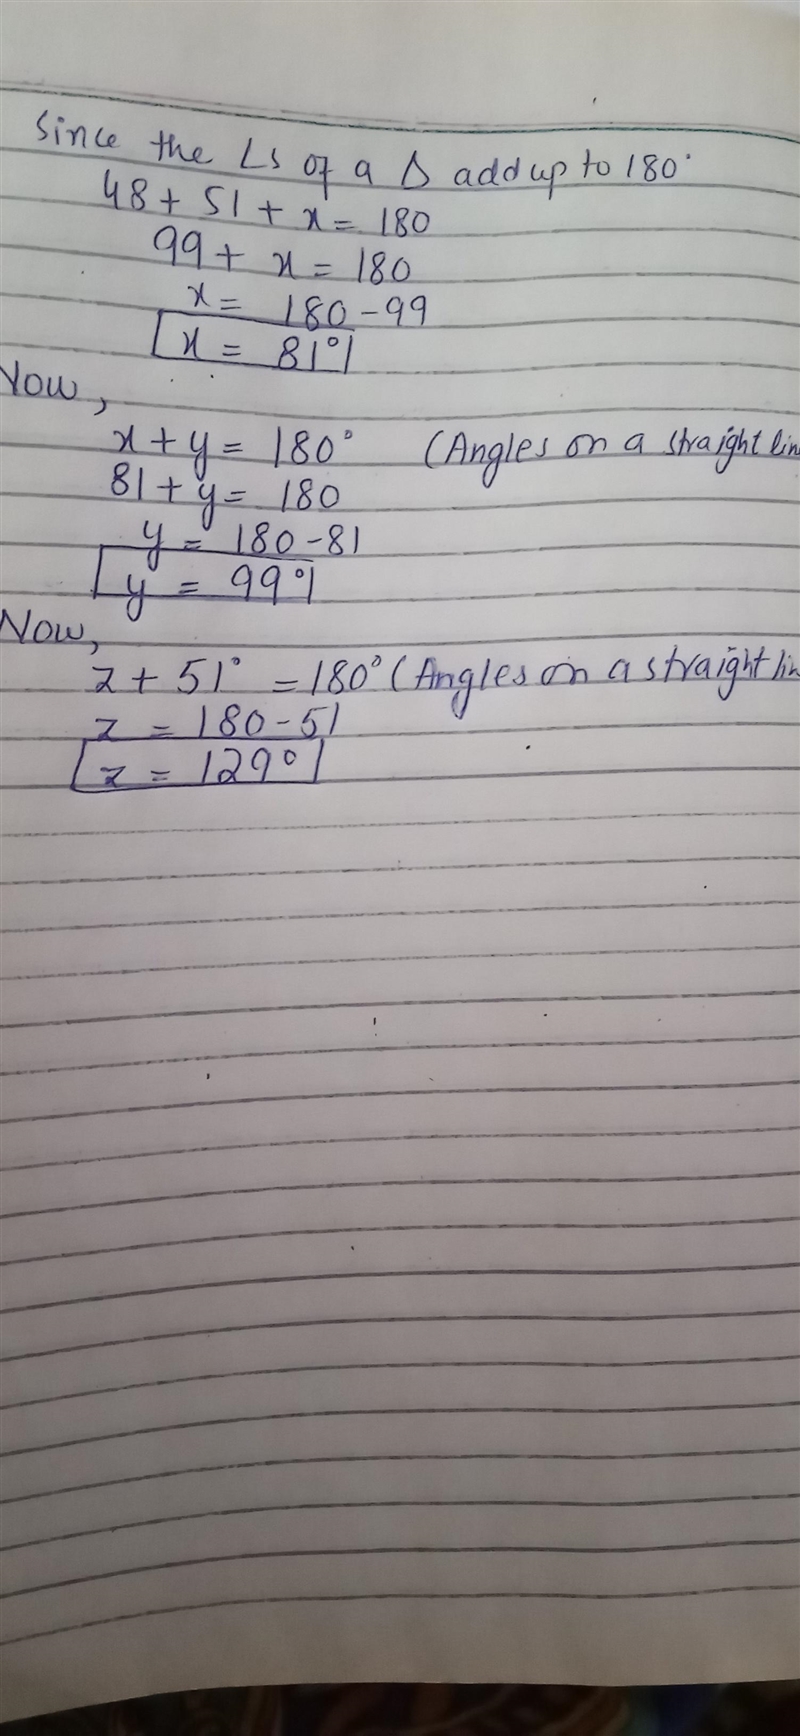 Since the ∠s of a Δ add up to 180°
48 + 51 + x = 180
99 + x = 180
x = 180 - 99
x = 81°
Now,
x + y = 180° (Angles on a straight lin
81 + y = 180
y = 180 - 81
y = 99°
Now,
z + 51° = 180° (Angles on a straight lin
z = 180 - 51
z = 129°